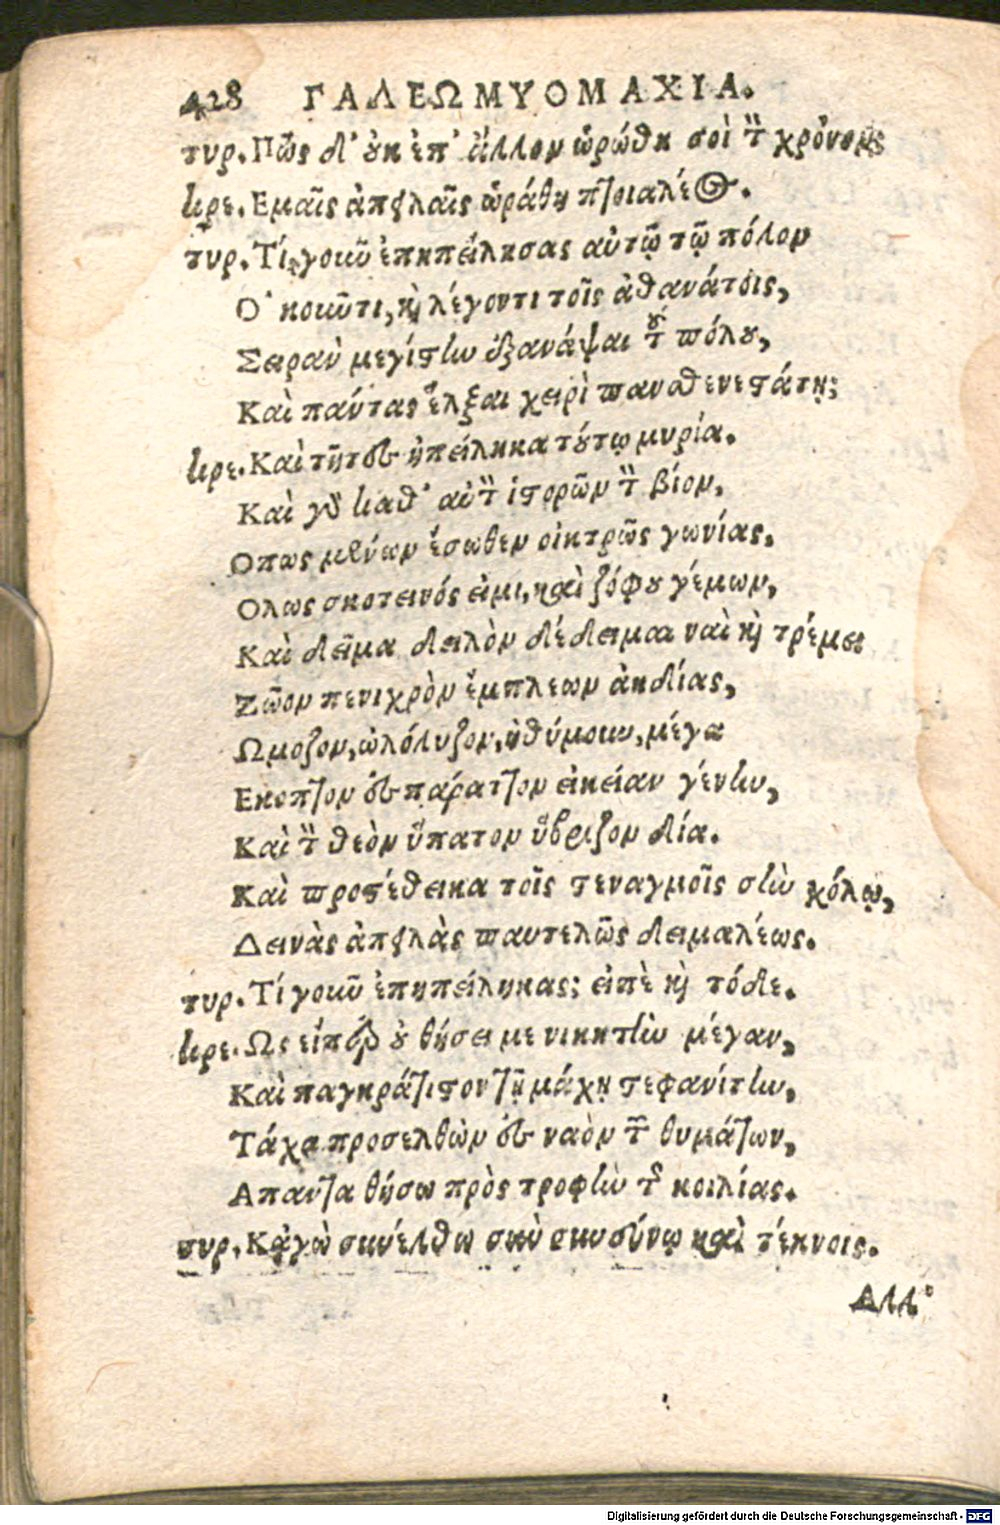 428 ΓΑΛΕΩΜΥΟΜΑΧΙΑ.
τυρ. Πῶς δ' οὐκ ἐπ' ἄλλον ὡράθη σοὶ τὸν χρόνον;
κρε. Εμαῖς ἀπειλαῖς ὡράθη πτοιαλέος.
τυρ. Τί γοιῦ ἐπηπείλησας αὐτῷ τῷ πόλον
Ο' κοιῶτι, καὶ λέγοντι τοῖς ἀθανάτοις,
Σειρὰν μεγίστην ἐξανάψαι τοῦ πόλου,
Καὶ πάντας ἕλξαι χειρὶ πανσθενεστάτῃ;
κρε. Καὶ τῆτον ἠπείληκα τούτῳ μυρία.
Καὶ γὰρ καθ' αὑτὸν ἱστορῶν τὸν βίον,
Οπως μένων ἔσωθεν οἰκτρῶς γωνίας,
Ολως σκοτεινός εἰμι, καὶ ζόφου γέμων,
Καὶ δεῖμα δειλὸν δέδειμαι ναὶ καὶ τρέμω
Ζῶον πενιχρὸν ἔμπλεων ἀκηδίας,
Ωμοζον, ὠλόλυζον, ἠθύμουν, μέγα
Εκοπτον ἐπάραττον εἰκείαν γένυν,
Καὶ τὸν θεὸν ὕπατον ὕβριζον δία.
Καὶ προστέθεικα τοῖς στεναγμοῖς σὺν χόλῳ,
Δεινὰς ἀπειλὰς παντελῶς δειμαλέως.
τυρ. Τί γοιῦ ἐπηπείληκας; εἰπὲ καὶ τόδε.
κρε. Ως εἴπερ οὐ θήσει με νικητὴν μέγαν,
Καὶ παγκράτιστον τῇ μάχῃ στεφανίτην,
Τάχα προσελθὼν ἐς ναὸν τῶν θυμάτων,
Απαντα θήσω πρὸς τροφὴν τῆς κοιλίας.
τυρ. Κᾀγὼ συνέλθω σὺν συνσύνῳ καὶ τέκνοις.
Αλλ'
Digitalisierung gefördert durch die Deutsche Forschungsgemeinschaft - DFG